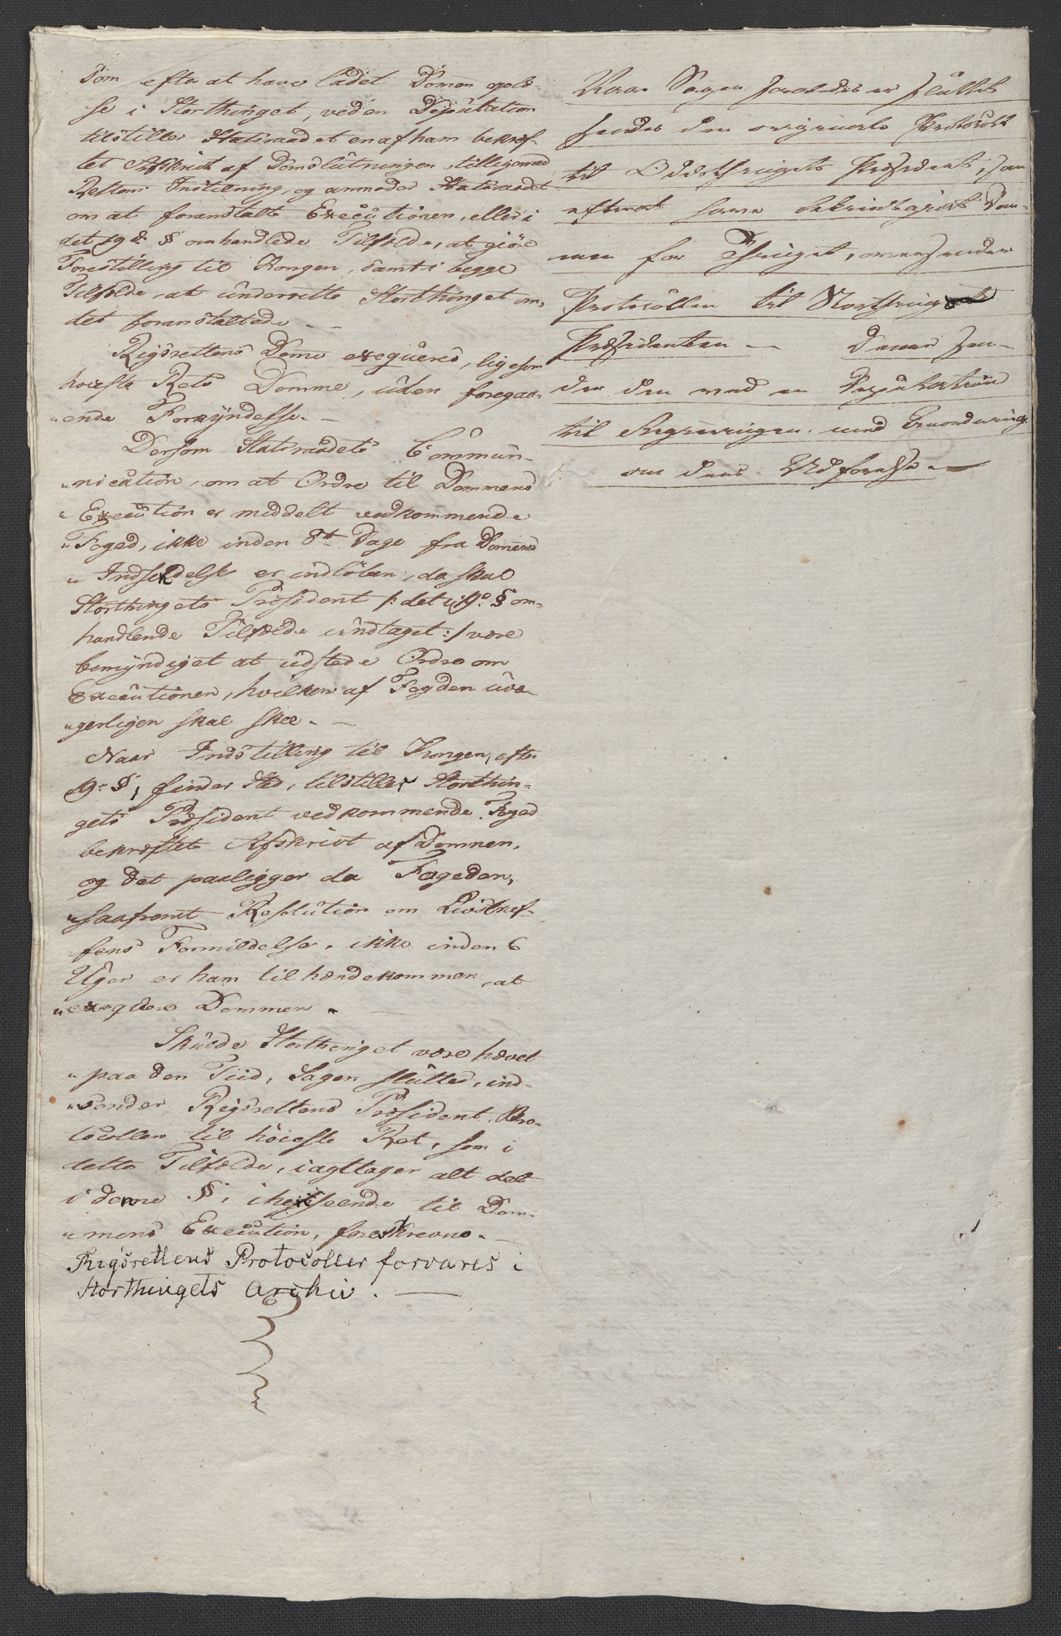 som efter at have ladet Domen oplæ-
se i Storthinget, ved en Deputation
tilstiller Statsraadet en af ham bekræf-
tet Afskrivt af Domslutningen, tilligemed
Rettens Instilling, og anmoder Statsraadet
om at forandstalte Executionen, eller i
det 19de § omhandlede Tilfælde, at giøre
Forestilling til Kongen, samt i begge
Tilfælde at underrette Storthinget om
det forandstaltede. —
Rigsrettens Dome exeqveres, ligesom
høieste Rets Domme, uden foregaa-
ende Forkyndelse. —
Dersom Statsraadets Commun-
nication, om at Ordre til Dommens
Execution er meddelt vedkommende
Foged, ikke inden 8te Dage fra Domens
Indsendelse er indløben, da skal
Storthingets Præsident /: det i 19de § om-
handlende Tilfælde undtaget :/ være
bemyndiget at udstede Ordre om
Executionen, hvilken af Fogden uvæ-
gerligen skal skee. —
Naar Indstilling til Kongen, efter
19de §, finder Sted, tilstiller Storthin-
gets Præsident vedkommende Foged
bekræftet Afskrivt af Dommen,
og det paaligger da Fogeden,
saafremt Resolution om Livstraf-
fens Formildelse, ikke inden 6
Uger er ham tilhændekommen, at
exeqvere Dommen. —
Skulde Storthinget være hævet
paa den Tiid, Sagen sluttes, ind-
sender Rigsrettens Præsident Pro-
tocollen til høieste Ret, som i
dette Tilfælde, iagttager alt det
i denne §, i henseende til Dom-
mens Execution, foreskrevne. —
Rigsrettens Protocoller forvares i
Storthingets Archiv. —
Naar Sagen saaledes er sluttet
sendes den originale Protocoll
til Odelsthingets Præsident, som
efterat have bekiendtgiort Dom-
men for Thinget, oversender
Protocollen til Storthingets
Præsidenten — Denne sen-
der den med en Deputation
til Regieringen med Anmodning
om dens Udførelse. —